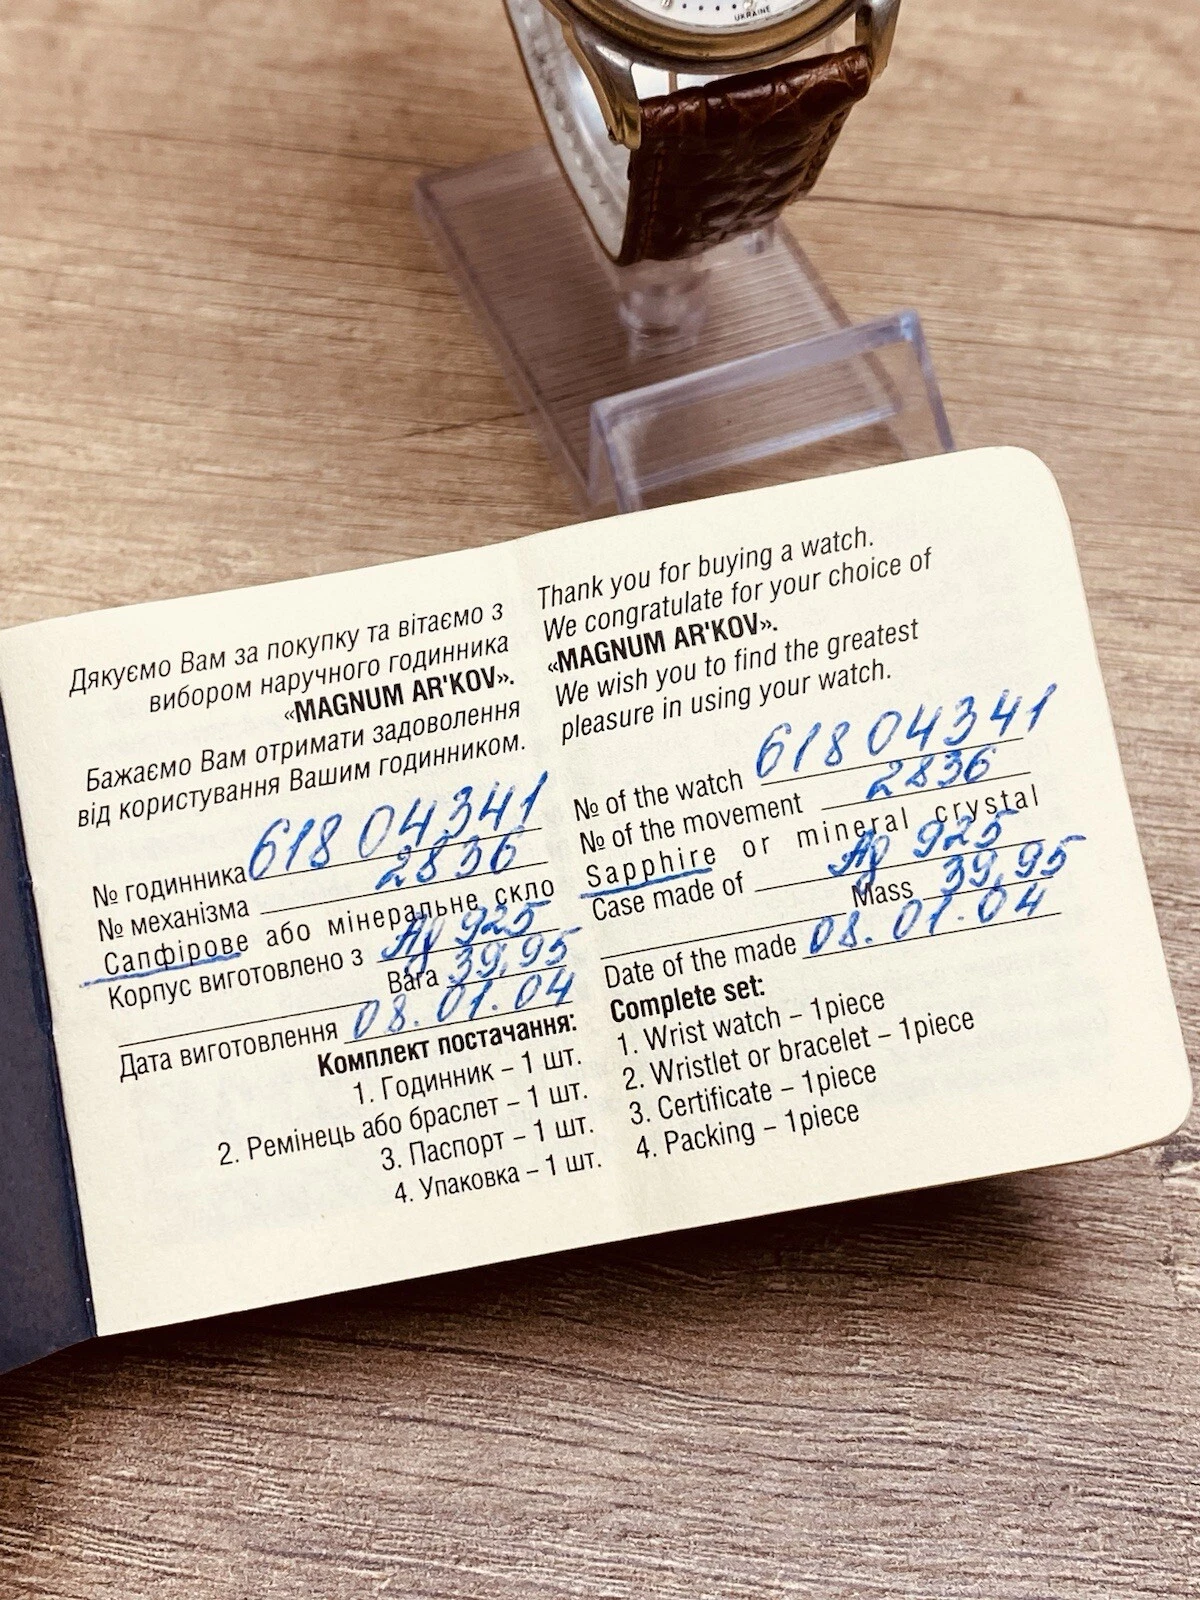 UKRAINE
Дякуємо Вам за покупку та вітаємо з
вибором наручного годинника
«MAGNUM AR'KOV».
Бажаємо Вам отримати задоволення
від користування Вашим годинником.
№ годинника 618 04341
№ механізма 2836
Сапфірове або мінеральне скло
Корпус виготовлено з Ag 925
Вага 39,95
Дата виготовлення 08.01.04
Комплект постачання:
1. Годинник – 1 шт.
2. Ремінець або браслет – 1 шт.
3. Паспорт – 1 шт.
4. Упаковка – 1 шт.
Thank you for buying a watch.
We congratulate for your choice of
«MAGNUM AR'KOV».
We wish you to find the greatest
pleasure in using your watch.
№ of the watch 618 04341
№ of the movement 2836
Sapphire or mineral crystal
Case made of Ag 925
Mass 39,95
Date of the made 08.01.04
Complete set:
1. Wrist watch – 1piece
2. Wristlet or bracelet – 1piece
3. Certificate – 1piece
4. Packing – 1piece